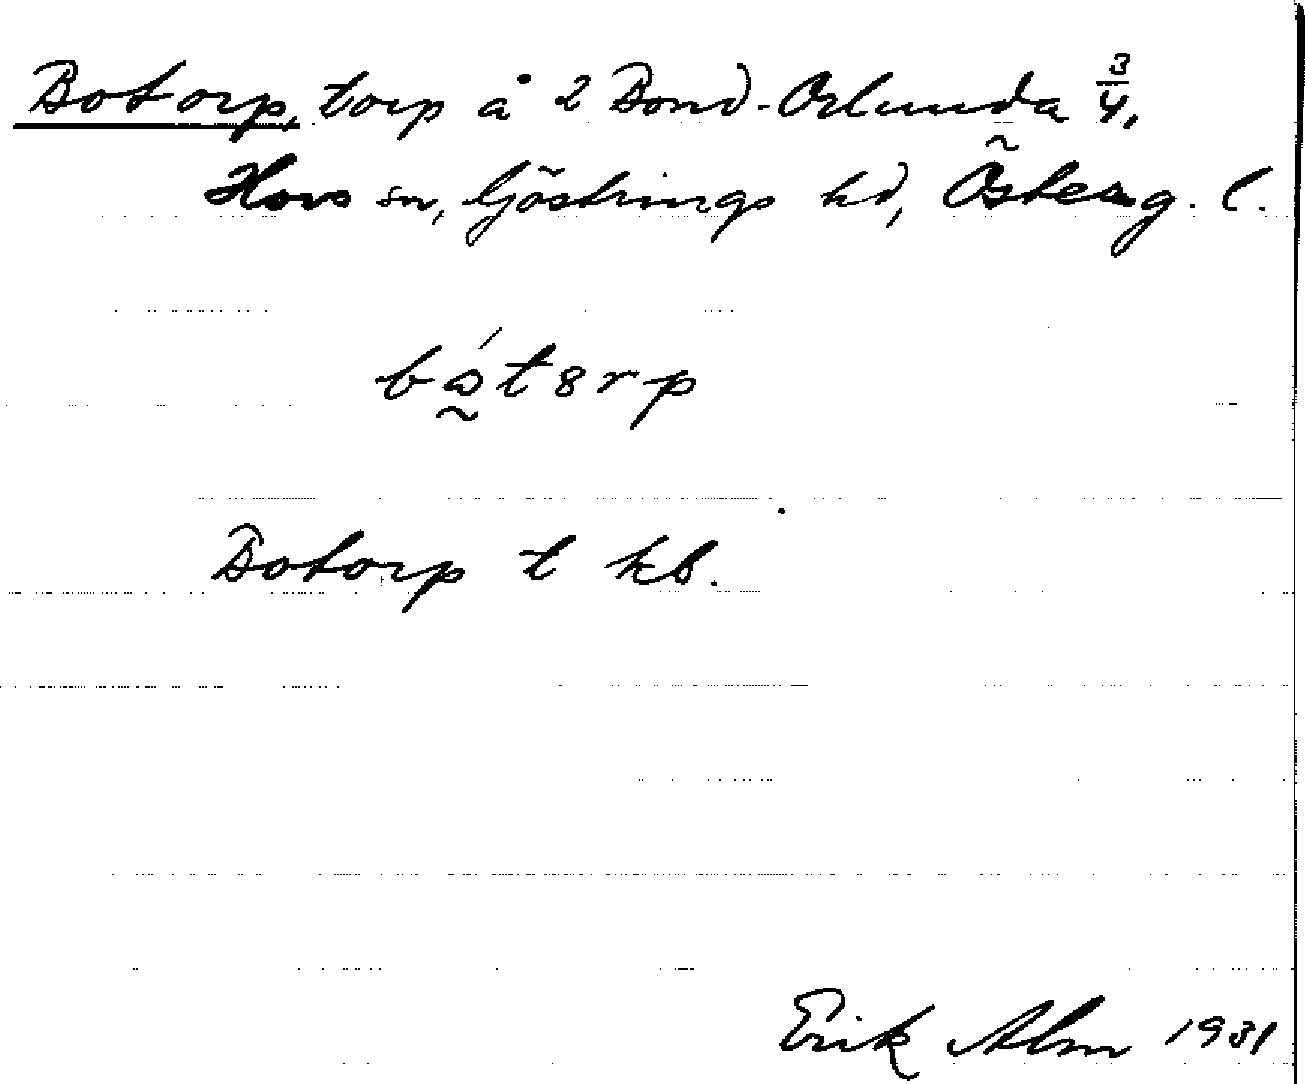 Botorp, torp å 2 Bond-Orlunda 3/4,
Hovs sn, Göstrings hd, Österg. l.
bótərp
Botorp t kb.
Erik Alm 1931